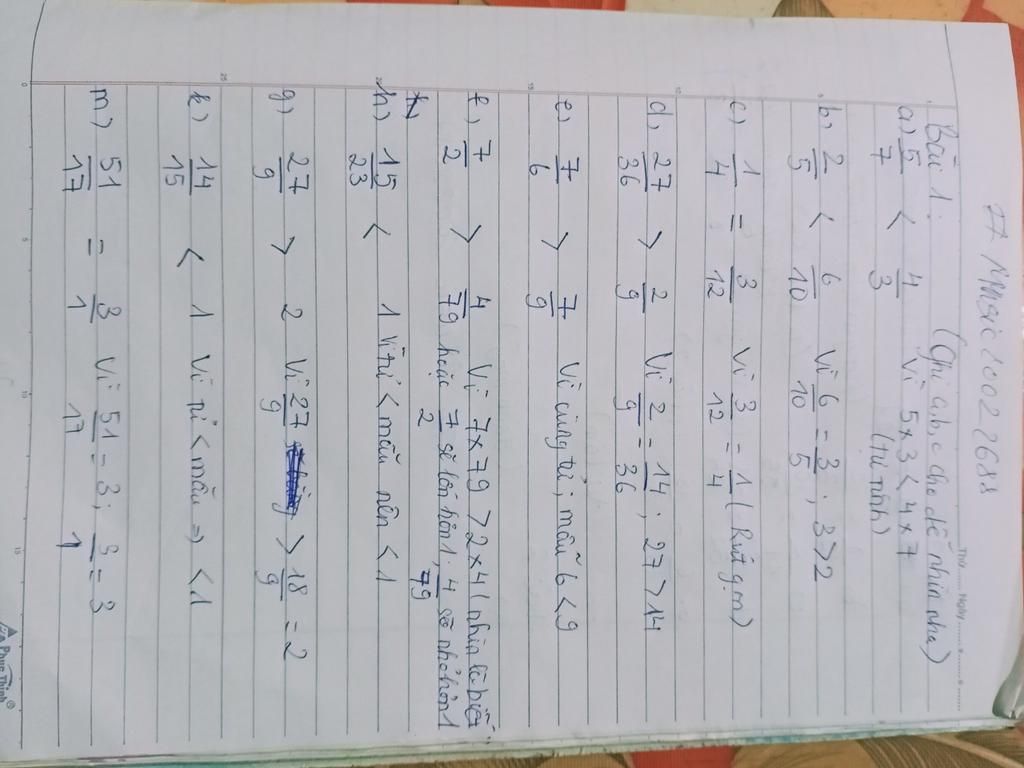 Thứ.......Ngày...........
Bài 1: (Ghi a,b,c cho dễ nhìn nha)
a) 5/7 < 4/3 Vì 5x3 < 4x7
(tử tính)
b, 2/5 < 6/10 Vì 6/10 = 3/5; 3>2
c) 1/4 = 3/12 Vì 3/12 = 1/4 (Rút gọn)
d, 27/36 > 2/9 Vì 2/9 = 14/36; 27>14
e, 7/6 > 7/9 Vì cùng tử; mẫu 6<9
f, 7/2 > 4/79 Vì 7x79 > 2x4 (nhìn là biết
hoặc 7/2 sẽ lớn hơn 1; 4/79 sẽ nhỏ hơn 1
h) 15/23 < 1 Vì tử < mẫu nên < 1
g) 27/9 > 2 Vì 27/9 > 18/9 = 2
k) 14/15 < 1 Vì tử < mẫu => < 1
m) 51/17 = 3/1 Vì 51/17 = 3; 3/1 = 3
Phúc Thịnh